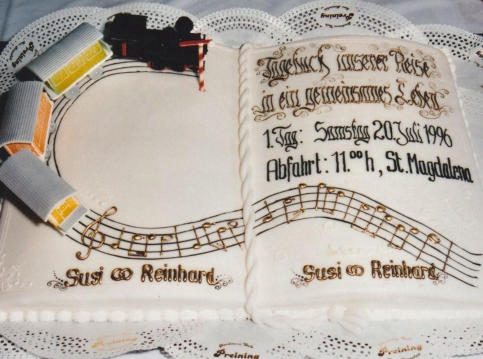 Preining
Tagebuch unserer Reise
in ein gemeinsames Leben
1.Tag: Samstag 20.Juli 1996
Abfahrt: 11.00 h, St. Magdalena
Susi ∞ Reinhard
Susi ∞ Reinhard
Preining
Preining
Preining